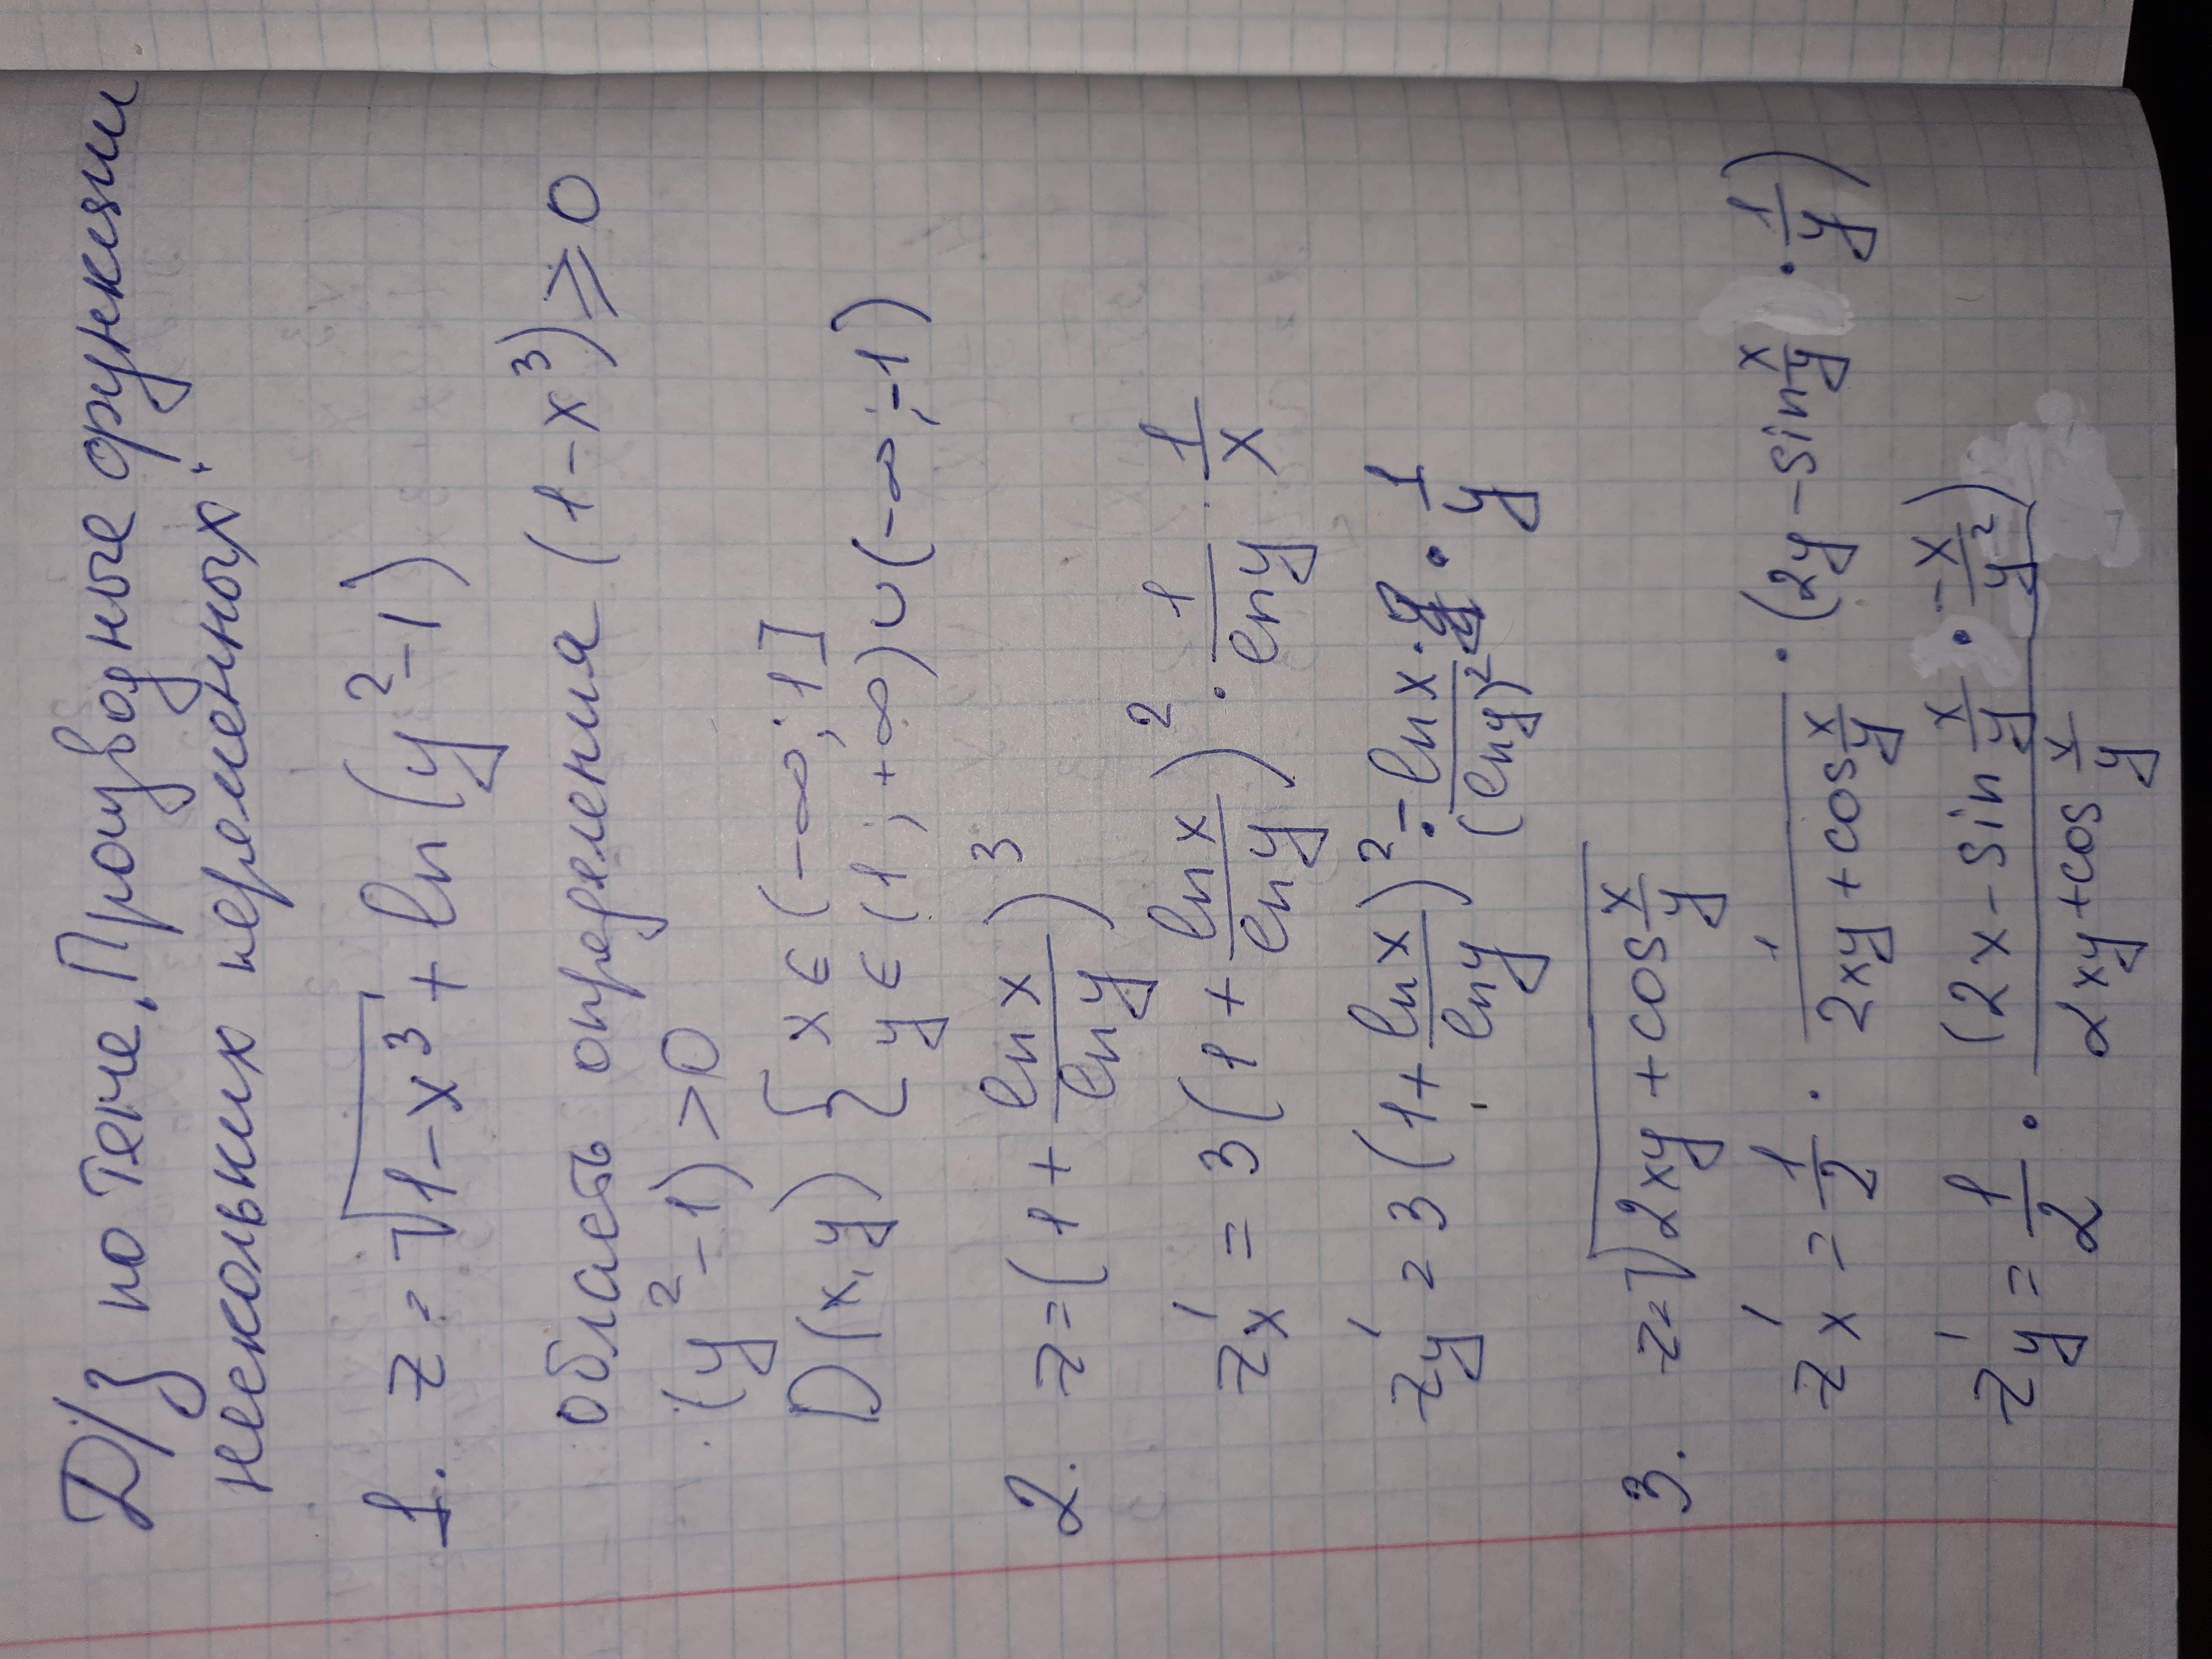 Д/з по теме „Производные функции
нескольких переменных“
1. z = √(1-x³) + ln(y²-1)
область определения (1-x³) ⩾ 0
(y²-1) > 0
D(x,y) { x ∈ (-∞; 1]
y ∈ (1; +∞) ∪ (-∞; -1)
2. z = (1 + ln x / ln y)³
z'x = 3(1 + ln x / ln y)² · 1 / ln y · 1 / x
z'y = 3(1 + ln x / ln y)² · - ln x / (ln y)² · 1 / y
3. z = √(2xy + cos x/y)
z'x = 1/2 · 1 / (2xy + cos x/y) · (2y - sin x/y · 1/y)
z'y = 1/2 · (2x - sin x/y · -x/y²) / (2xy + cos x/y)